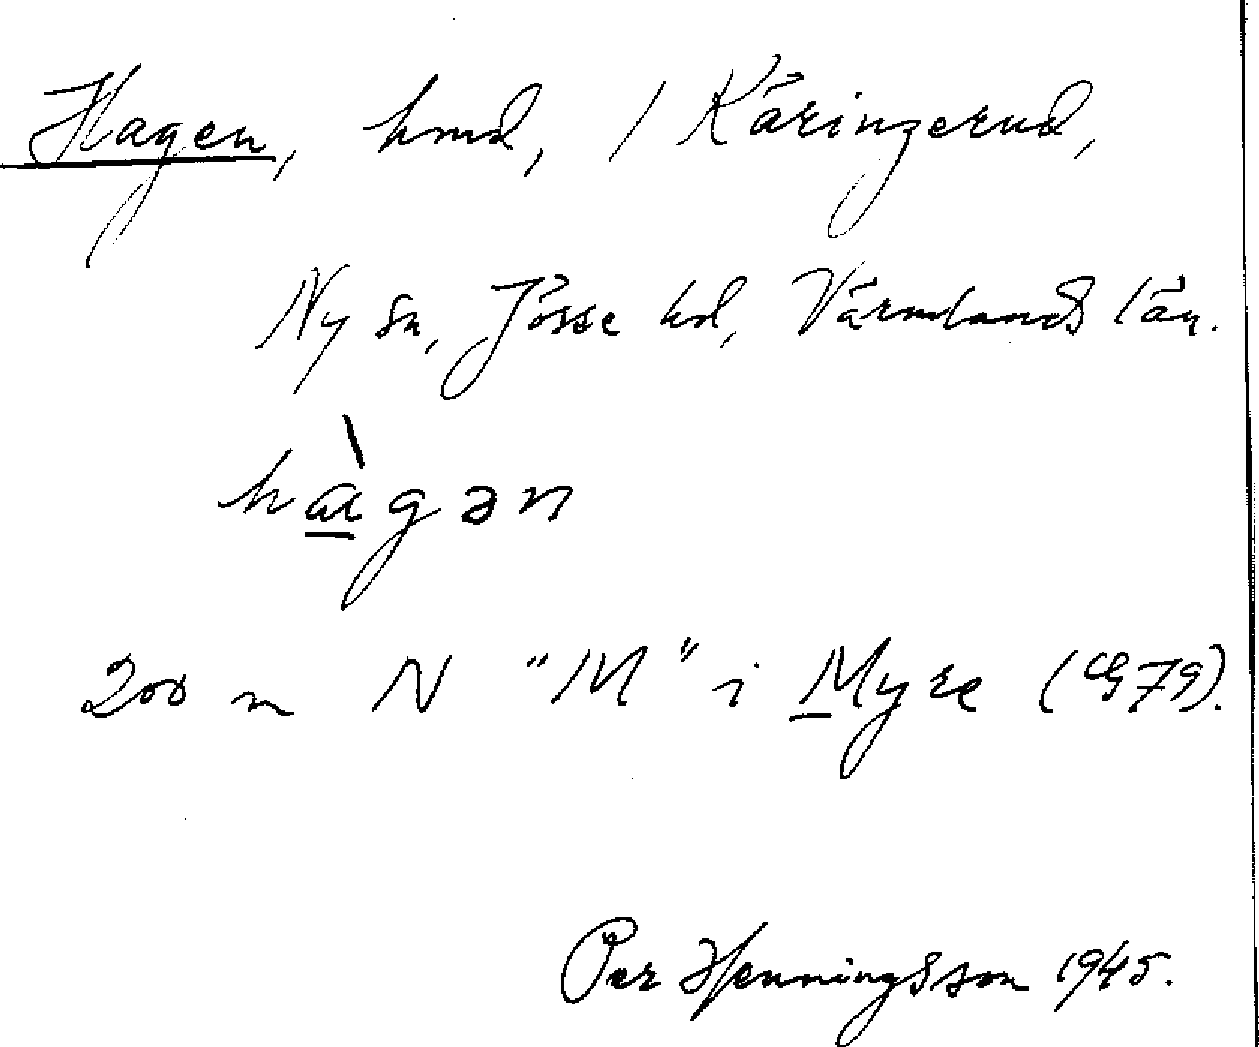 Hagen, hmd, / Käringerud,
Ny sn, Jösse hd, Värmlands län.
hàgən
200 m N "M" i Myre (G79).
Per Henningsson 1945.